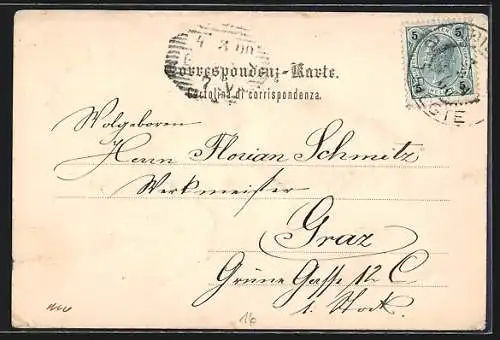 4 3 00
Correspondenz-Karte.
Cartolina di corrispondenza.
5 5
5 5
Wolgeboren
Herrn Florian Schmitz
Werkmeister
Graz
Grüne Gasse 12 C
1. Stock.
16